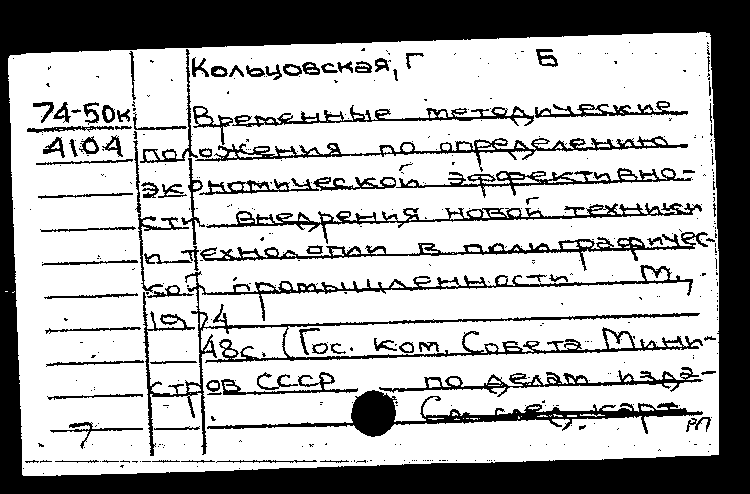 Кольцовская, Г Б
74-50к Временные методические
4104 положения по определению
экономической эффективно-
сти внедрения новой техники
и технологии в полиграфичес-
кой промышленности М.,
1974
48с. (Гос. ком. Совета Мини-
стров СССР по делам изда-
См. след. карт
7 РП